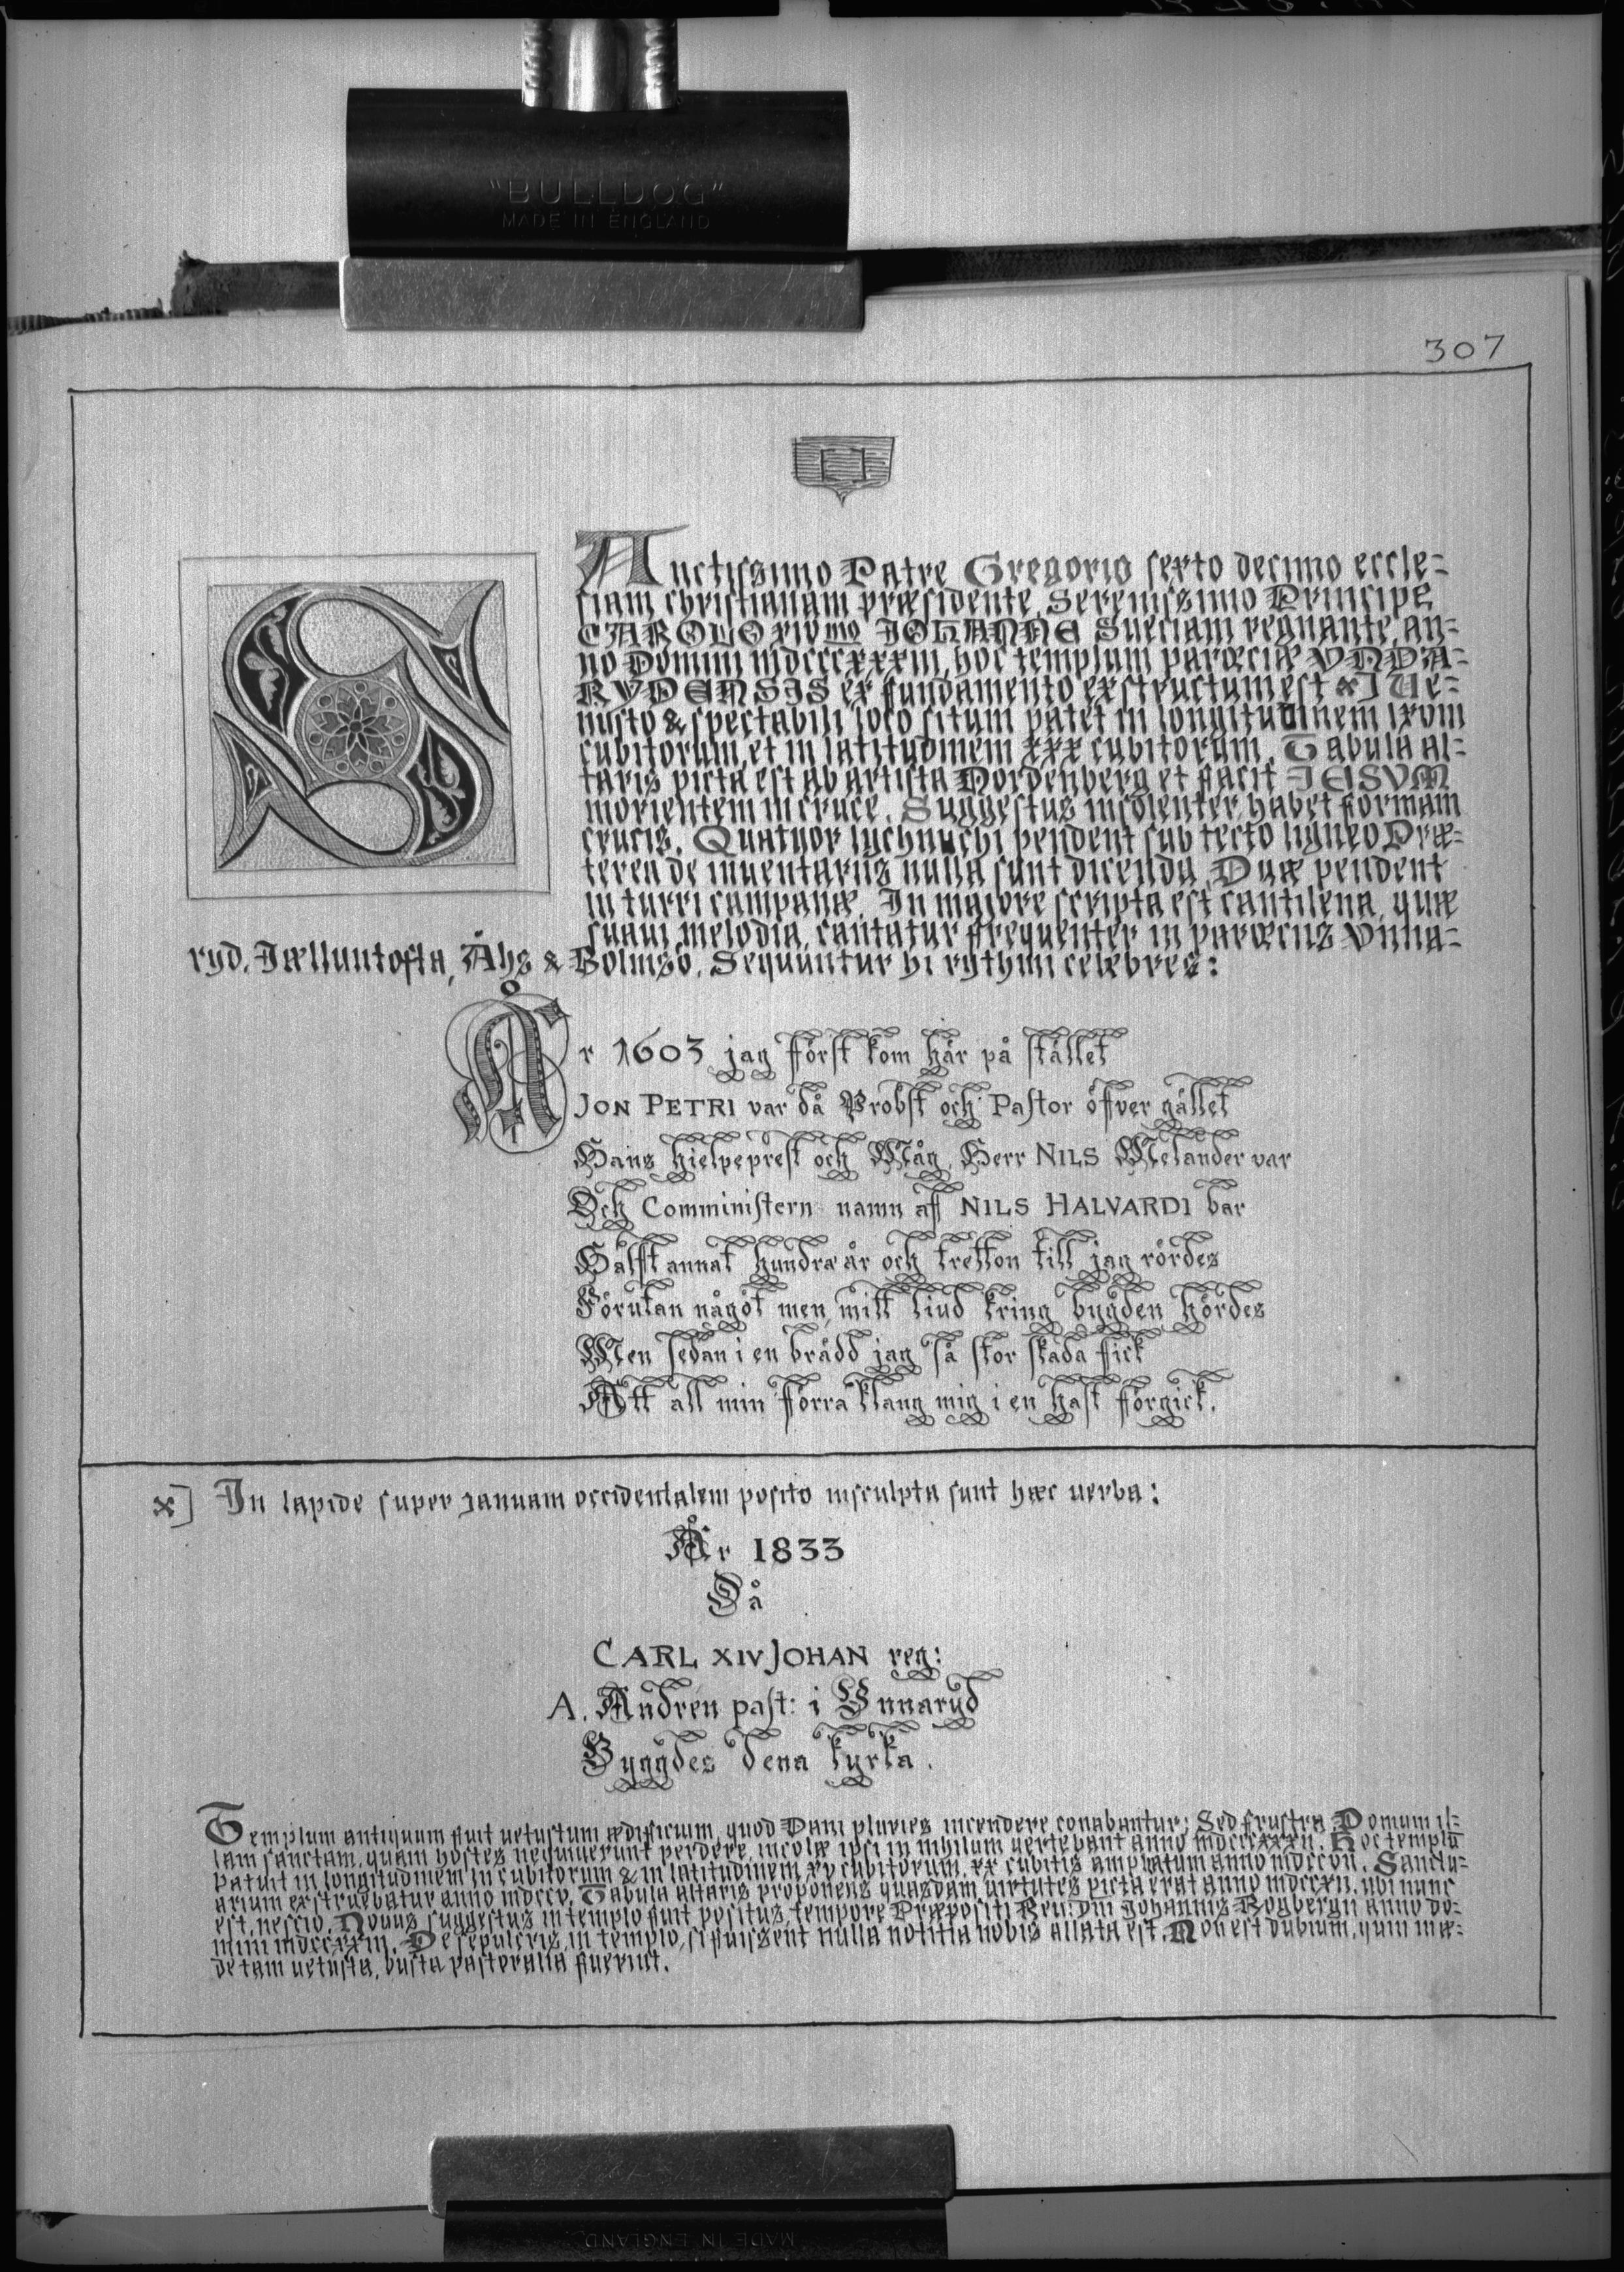 "BULLDOG"
MADE IN ENGLAND
307
SAnctissimo Patre Gregorio sexto decimo eccle-
siam christianam præsidente, Serenissimo Principe
CAROLO xiv mo JOHANNE Sueciam regnante, an-
no Domini mdcccxxxiii, hoc templum parœciæ VNDA-
RYDENSIS ex fundamento exstructum est x] Ve-
nusto & spectabili loco situm patet in longitudinem lxviii
cubitorum, et in latitudinem xxx cubitorum. Tabula al-
taris picta est ab artista Nordenberg et facit JESVM
morientem in cruce. Suggestus insolenter habet formam
crucis. Quatuor lychnuchi pendent sub tecto ligneo Præ-
terea de inventariis nulla sunt dicenda. Duæ pendent
in turri campanæ. In majore scripta est cantilena, quæ
suavi melodia, cantatur frequenter in parœciis Vnna-
ryd, Jælluntofta, Åhs & Bolmsö. Sequuntur hi rythmi celebres:
År 1603 jag först kom här på stället
JON PETRI var då Probst och Pastor öfver gället
Hans hjelpeprest och Måg, Herr NILS Melander var
Och Comministern namn af NILS HALVARDI bar
Hälft annat hundra år och tretton till jag rördes
Förutan något men, mitt liud kring bygden hördes
Men sedan i en brådd jag så stor skada fick
Att all min förra klang mig i en hast förgick.
x] In lapide super januam occidentalem posito insculpta sunt hæc verba:
År 1833
Då
CARL XIV JOHAN reg:
A. Andrén past: i Unnaryd
Byggdes dena kyrka.
Templum antiquum fuit vetustum ædificium, quod Dani pluries incendere conabantur; Sed frustra. Domum il-
lam sanctam, quam hostes nequiverunt perdere, incolæ ipsi in nihilum vertebant anno mdcccxxxii. Hoc templū
patuit in longitudinem cubitorum & in latitudinem xv cubitorum, ex cubitis ampliatum anno mdccvii. Sanctu-
arium exstruebatur anno mdccv. Tabula altaris proponens quasdam virtutes picta erat anno mdccxii, ubi nunc
est, nescio. Novus suggestus in templo fuit positus, tempore Præpositi Rev: Dni Johannis Rogbergii anno do-
mini mdccxxiii. De sepulcris, in templo, si fuissent nulla notitia nobis allata est. Non est dubium, quin in æ-
de tam vetusta, busta pastoralia fuerint.
MADE IN ENGLAND